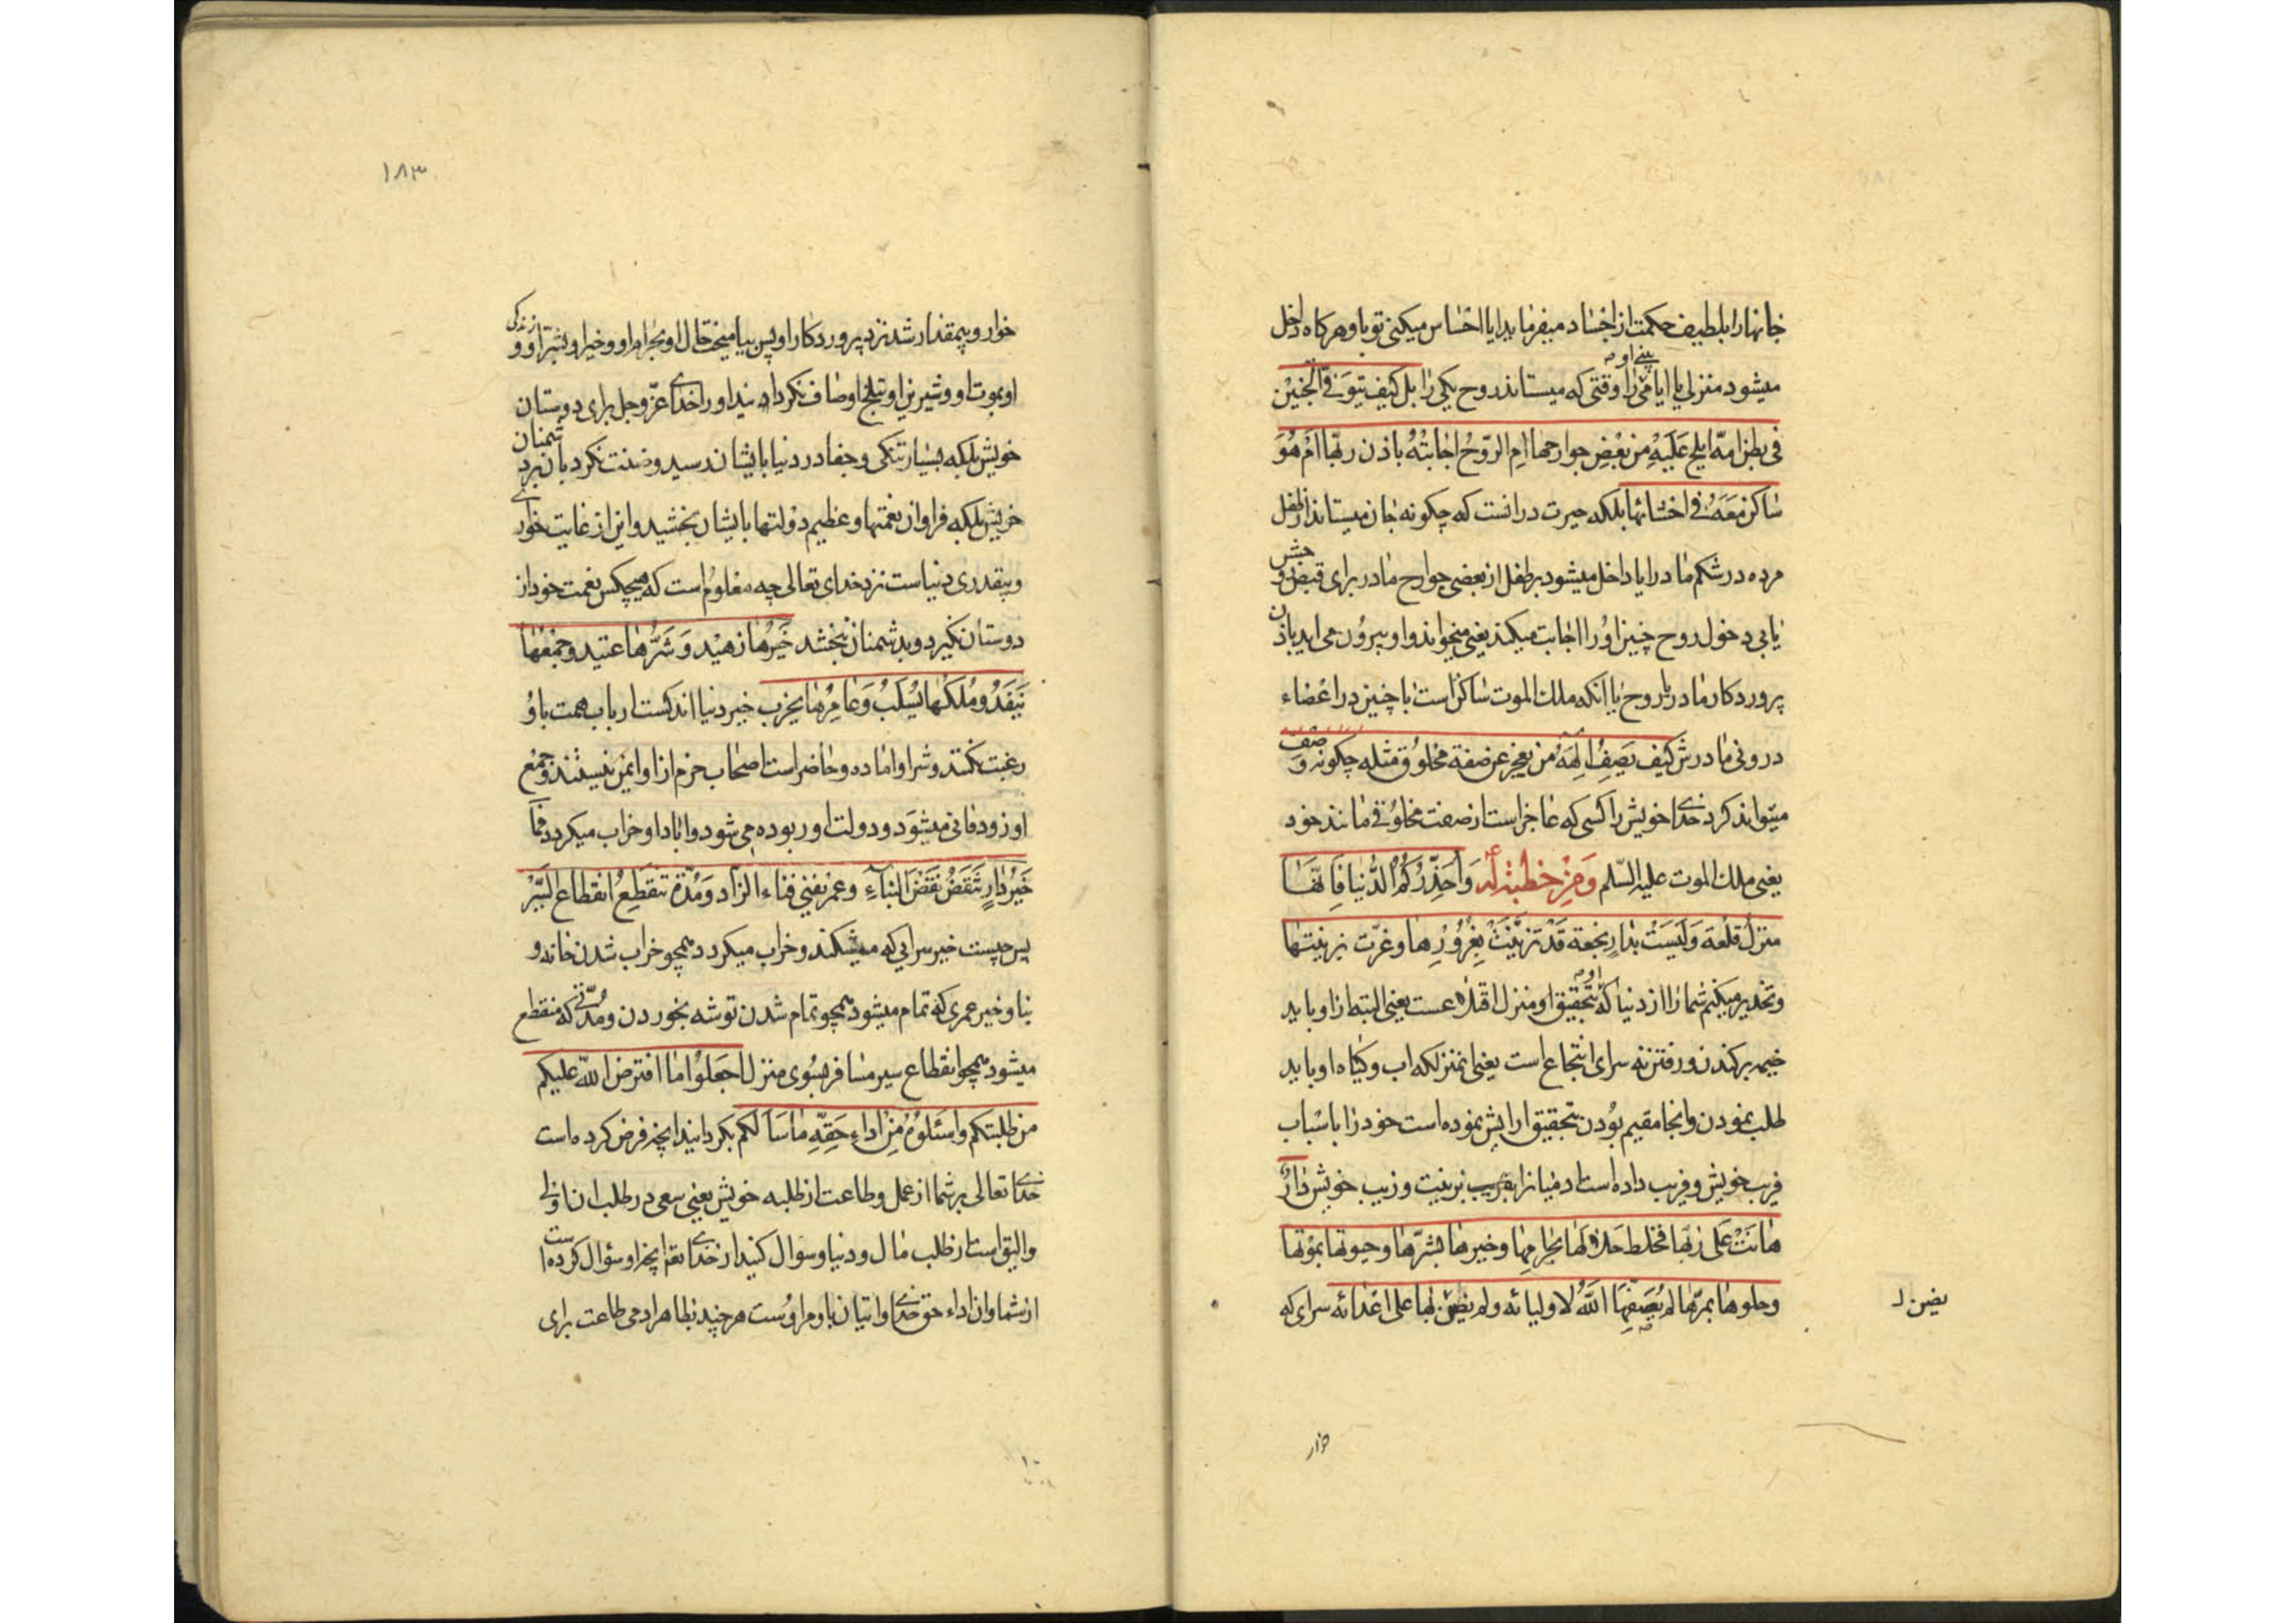 جانها را بلطیف حکمت از اجساد میفرماید ایا احساس میکنی تو باو هرکاه داخل
میشود منزلی یا ایا می بینی او را وقتی که میستاند روح یکی را بل کیف یتوفی الجنین
فی بطن امّه ایلج عَلَیْهِ من بعْضِ جوارحها امِ الرّوحُ اجابتْهُ باذن ربّها اَمْ هُوَ
ساکن مَعَهُ فی احشائها بلکه حیرت در انست که چکونه جان میستاند از طفل
مرده در شکم مادر ایا داخل میشود بر طفل از بعضی جوارح مادر برای قبض روحش
یا بی دخول روح جنین او را اجابت میکند یعنی میخواند و او بیرون می اید باذن
پروردکار مادر یا روح یا انکه ملک الموت ساکن است با جنین در اعضاء
درونی مادرش کیف یَصِفُ الهَهُ من یعجز عن صفة مخلوق مثله چکونه وصف
میتواند کرد خدای خویش را کسی که عاجز است از صفت مخلوقی مانند خود
یعنی ملک الموت علیه السّلم وَمِنْ خطبة له وَاُحَذِّرُکُمُ الدُّنیا فَاِنّهَا
منزلُ قلعة وَلَیسَتْ بدارِ نجعة قَدْ تزیَّنَتْ بِغُرُورِها وغرّت بزینتها
و تحذیر میکنم شما را از دنیا که بتحقیق او منزل اقتلاعست یعنی البته از او باید
خیمه برکندن و رفتن نه سرای انتجاع است یعنی نه منزلکه اب و کیاه او باید
طلب نمودن و انجا مقیم بودن بتحقیق ارایش نموده است خود را باسباب
فریب خویش و فریب داده است ادمیان را بفریب بزینت و زیب خویش دارٌ
هانَتْ عَلی ربّها فخلط حلالها بحرامِها وخیرها بشرّها وحیوتها بموتها
وحلوها بمرّها لم یُصَفِّهَا اللّهُ لاولیائه ولم یضنّ بها علی اعدائه سرای که
یضن ل
خوار
۱۸۳
خوار و بیمقدار شد نزد پروردکار او پس بیامیخت حلال او بحرام او و خیر او بشر او و زندکی
او بموت او و شیرینی او بتلخ او صاف نکردانید او را خدای عزّ وجل برای دوستان
خویش بلکه بسیار تنکی و جفا در دنیا بایشان رسید و ضنت نکرد بان بر دشمنان
خویش بلکه فراوان نعمتها و عظیم دولتها بایشان بخشید و این از غایت خواری
و بیقدری دنیاست نزد خدای تعالی چه معلوم است که هیچکس نعمت خود از
دوستان نکیرد و بدشمنان نبخشد خَیرُها زهیْد وَشَرُّها عتید وجمْعُها
یَنْفَدُ ومُلکُها یُسْلَبُ وَعامِرُها یخرب خیر دنیا اندکست ارباب همت باو
رغبت نکنند و شر او اماده و حاضر است اصحاب حزم از او ایمن نیستند و جمع
او زود فانی میشود و دولت او ربوده می شود و اباد او خراب میکردد فما
خَیرُ دارٍ تُنْقَضُ نَقْضَ البِناءِ وعمْر یفنی فناء الزاد ومُدّة تنقطِعُ انقطاع السَّیْر
پس چیست خیر سرایی که میشکند و خراب میکردد همچو خراب شدن خانه و
بنا و خیر عمری که تمام میشود همچو تمام شدن توشه بخوردن و مدّتی که منقطع
میشود همچو انقطاع سیر مسافر بسوی منزل اجعلوا ما افترض اللّه علیکم
من طلبتکم واسئلوهُ مِنْ اداءِ حَقِّهِ ما سَاَلَکم بکردانید انچه فرض کرده است
خدای تعالی بر شما از عمل و طاعت از طلبه خویش یعنی سعی در طلب ان اولی
و الیق است از طلب مال و دنیا و سؤال کنید از خدای تعم انچه او سؤال کرده است
از شما و ان اداء حق خدای و اتیان باوامر اوست هر چند بظاهر ادمی طاعت برای